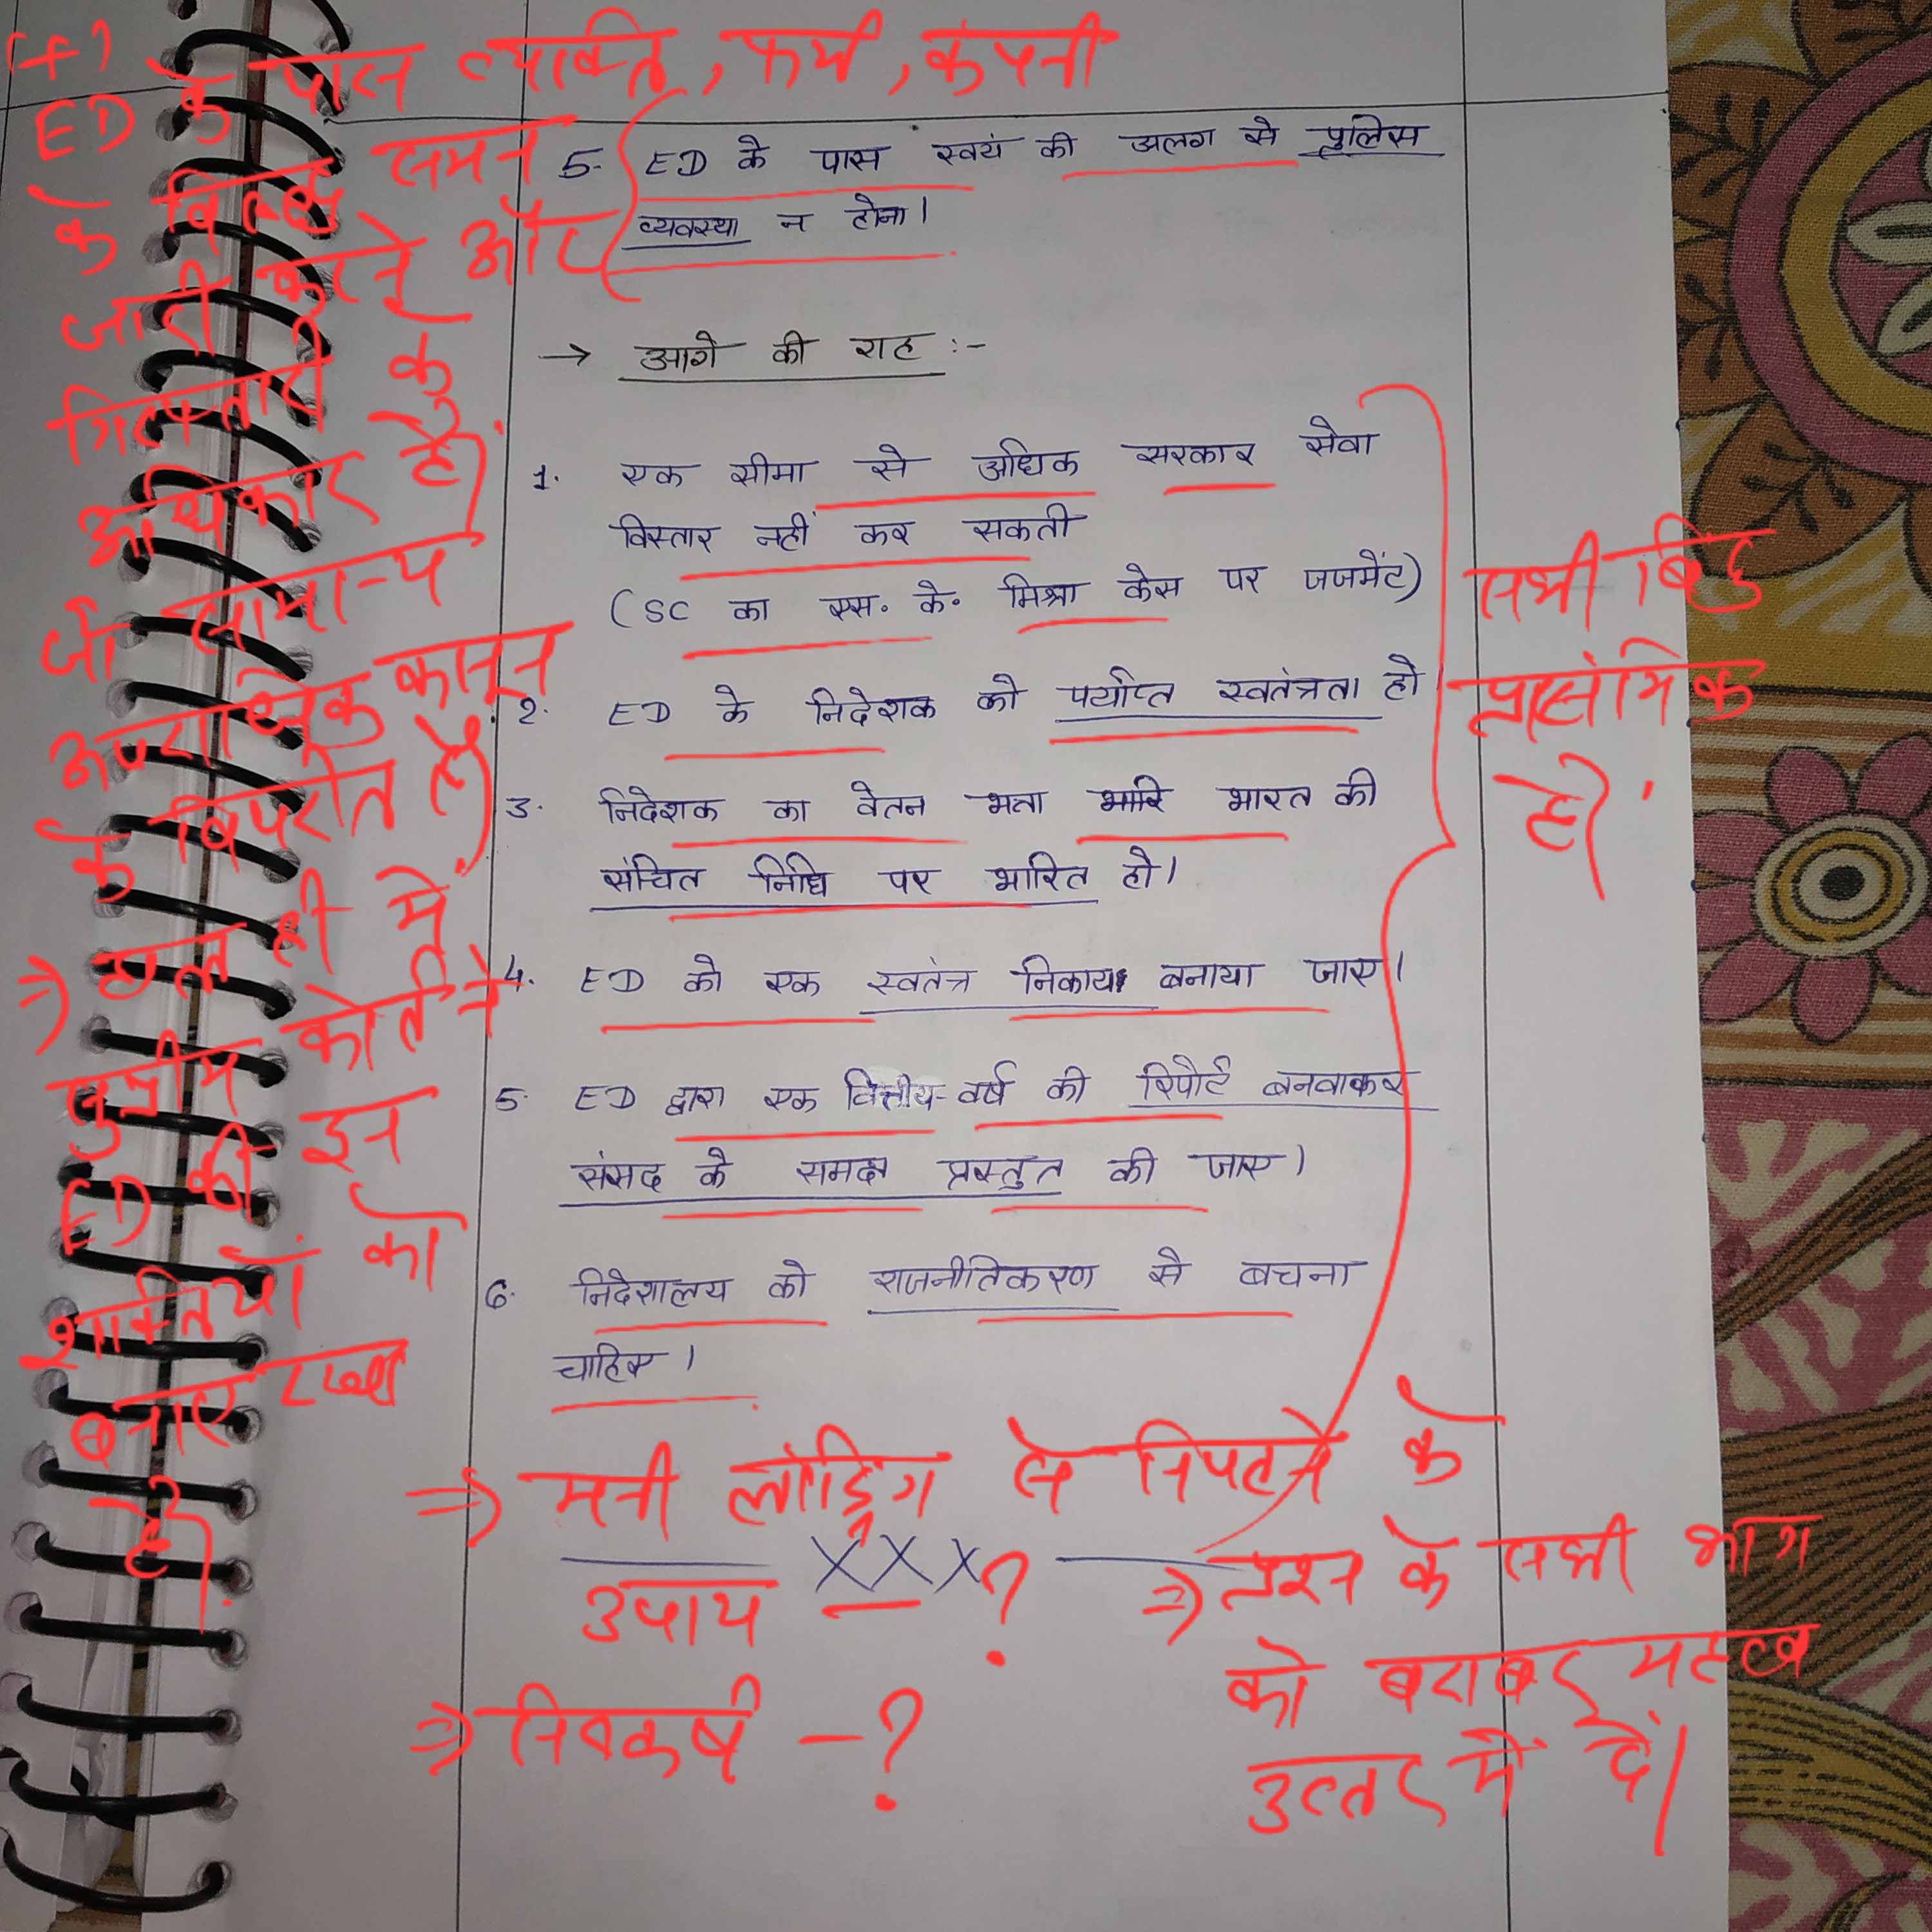 (+)
ED के पास व्यक्ति, फर्म, कंपनी
के विरूद्ध समन
जारी करने और
गिरफ्तारी के
अधिकार है।
जो सामान्य
अपराधिक कानून
के विपरीत है।
⇒ हाल ही में
सुप्रीम कोर्ट ने
ED की इन
शक्तियों को
बनाए रखा
है।
5. ED के पास स्वयं की अलग से पुलिस
व्यवस्था न होना।
→ आगे की राह :-
1. एक सीमा से अधिक सरकार सेवा
विस्तार नहीं कर सकती
(SC का एस. के. मिश्रा केस पर जजमेंट)
2. ED के निदेशक को पर्याप्त स्वतंत्रता हो
3. निदेशक का वेतन भत्ता भारि भारत की
संचित निधि पर भारित हो।
4. ED को एक स्वतंत्र निकाय बनाया जाए।
5. ED द्वारा एक वित्तीय-वर्ष की रिपोर्ट बनवाकर
संसद के समक्ष प्रस्तुत की जाए।
6. निदेशालय को राजनीतिकरण से बचना
चाहिए।
सभी बिंदु
प्रासंगिक
है।
⇒ मनी लॉड्रिंग से निपटने के
XXX
उपाय - ?
⇒ निष्कर्ष - ?
⇒ प्रश्न के सभी भाग
को बराबर महत्व
उत्तर में दें।